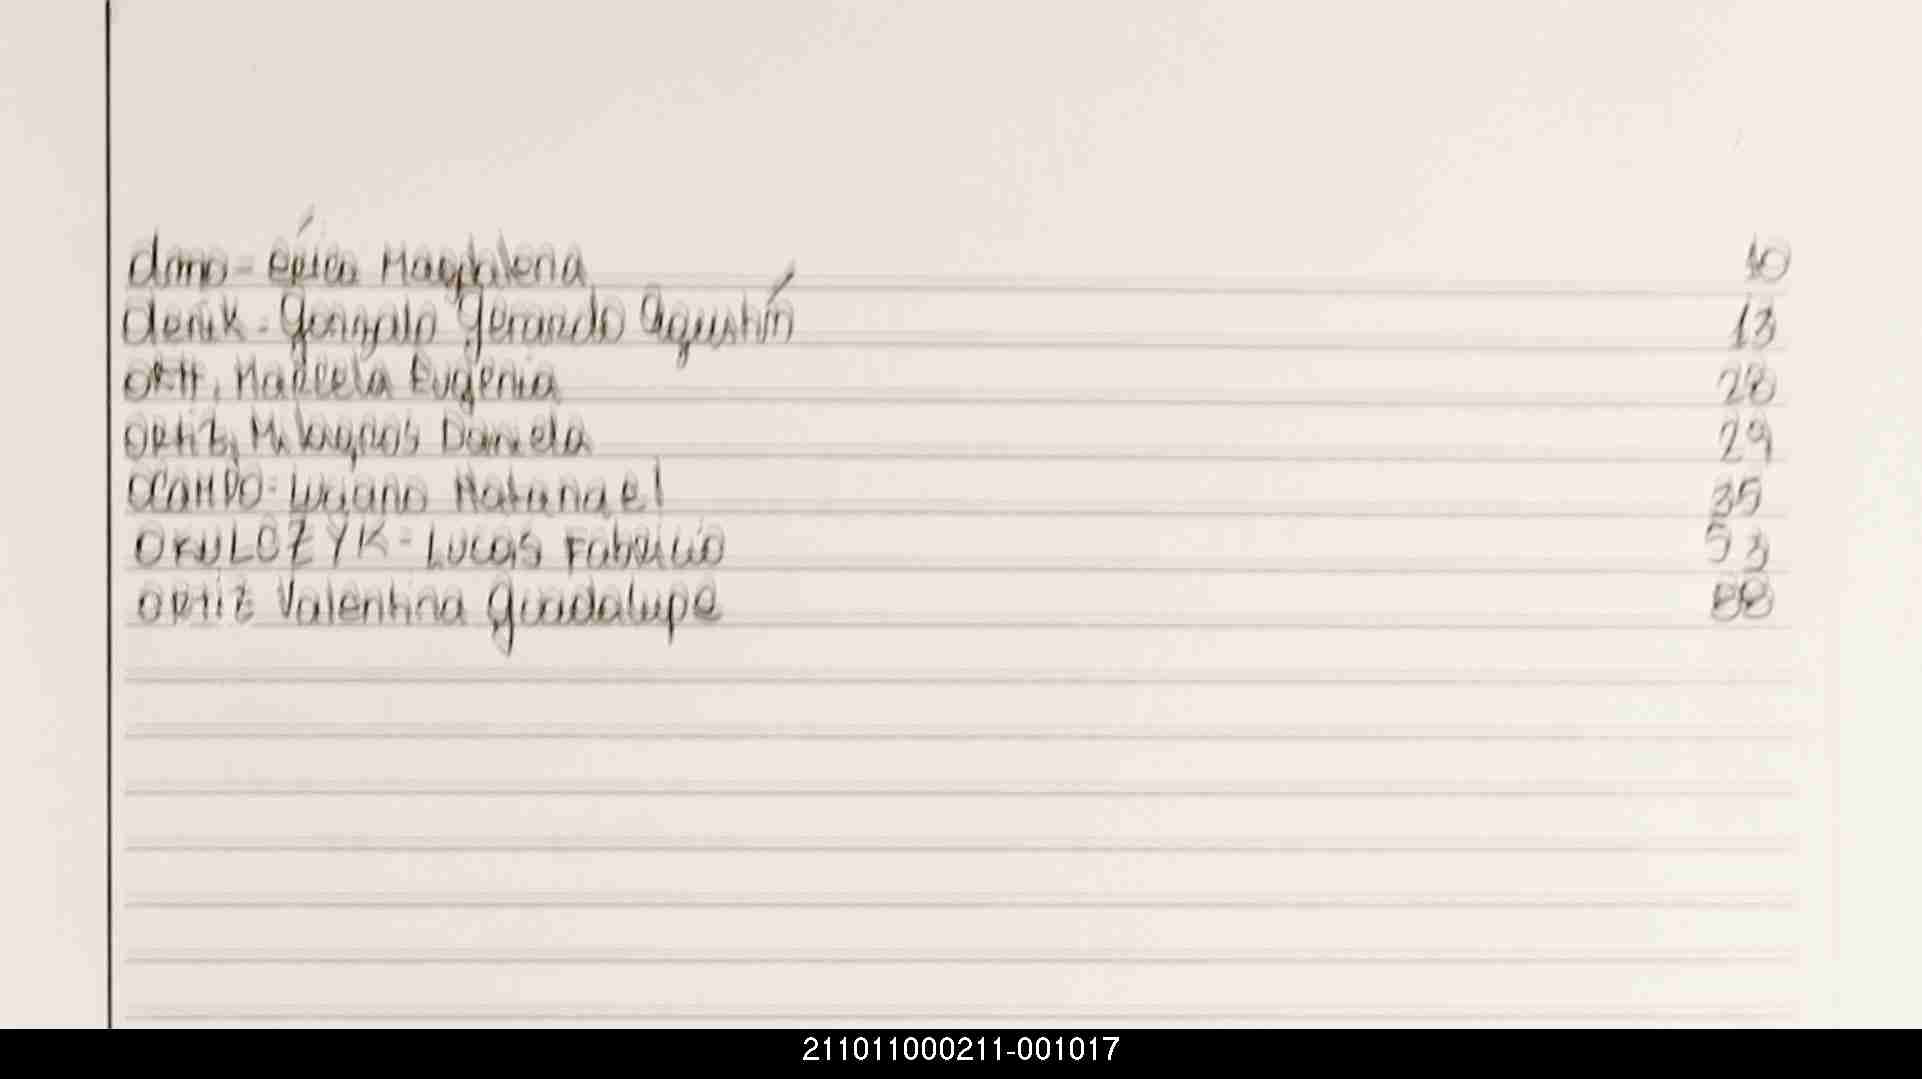 Olmo - Érica Magdalena 10
Olenik - Gonzalo Gerardo Agustín 13
ORtt, Marcela Eugenia 28
ORtiz, Milagros Daniela 29
OCAMPO - Luciano Natanael 35
OKULCZYK - Lucas Fabricio 53
ORtiz Valentina Guadalupe 88
211011000211-001017